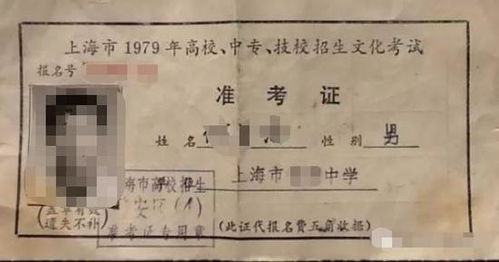 上海市1979年高校、中专、技校招生文化考试
报名号
准考证
姓名 性别 男
上海市 中学
海市高校招生
准考证专用章
(盖章有效
遗失不补)
(此证代报名费五角收据)